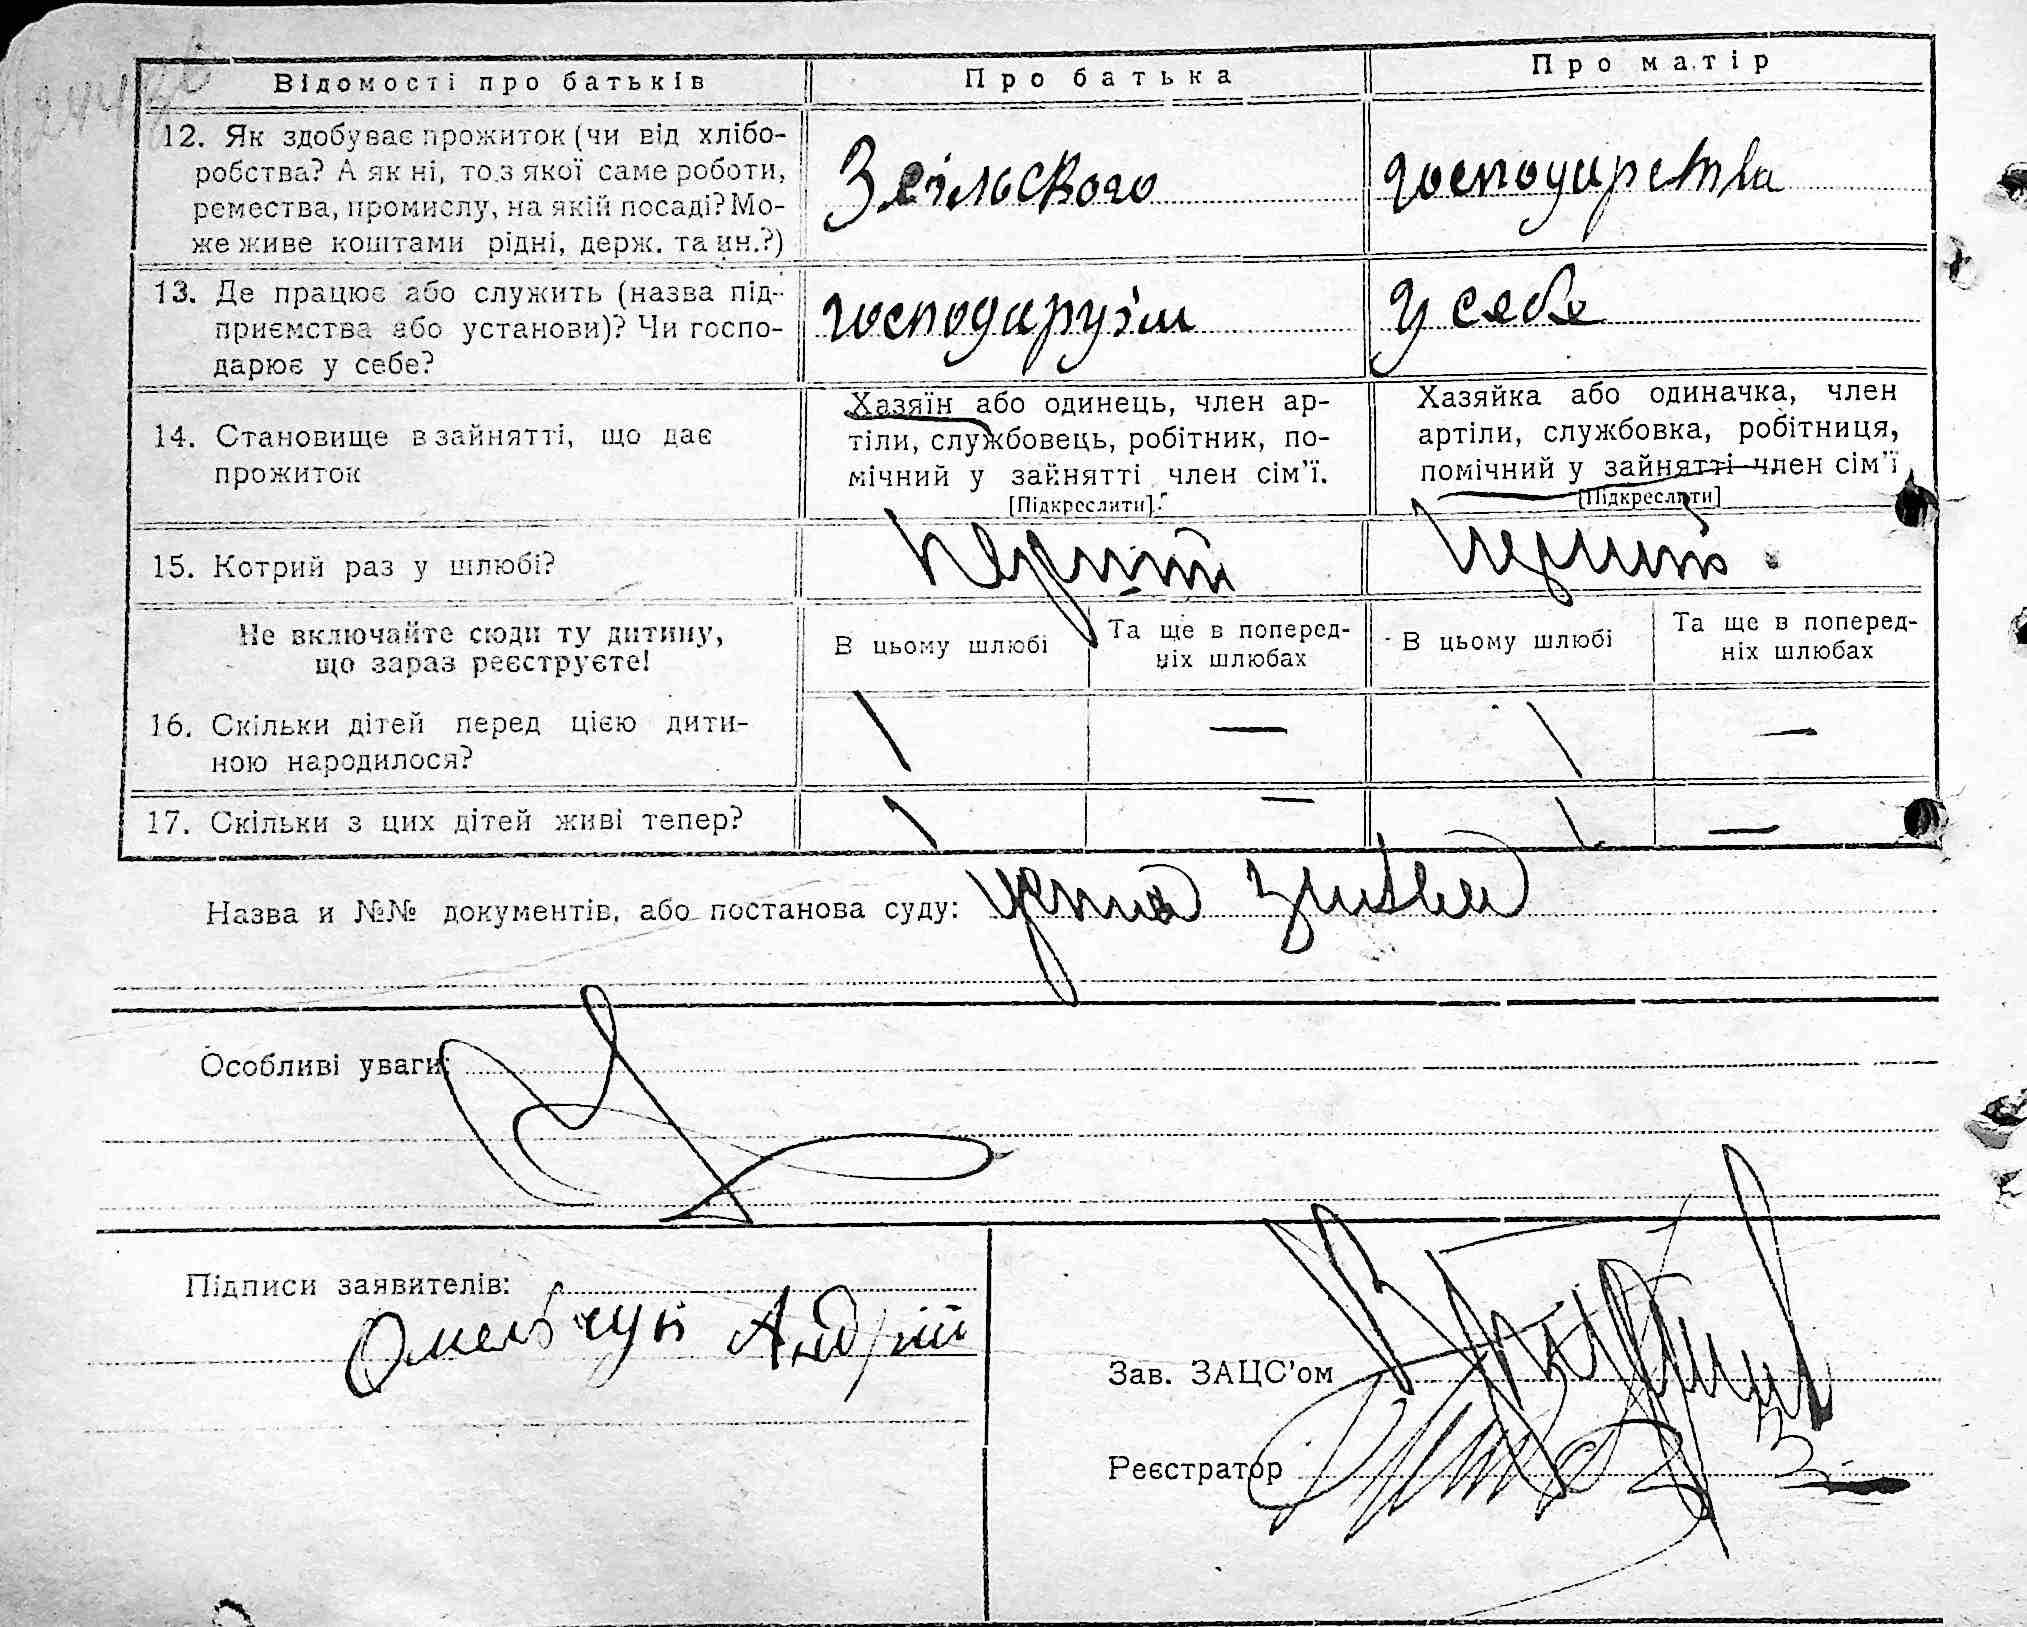 Відомості про батьків
Про батька
Про матір
12. Як здобуває прожиток (чи від хлібо-
робства? А як ні, то з якої саме роботи,
ремества, промислу, на якій посаді? Мо-
же живе коштами рідні, держ. та ин.?)
З сільского
господарства
13. Де працює або служить (назва під-
приємства або установи)? Чи госпо-
дарює у себе?
господарузім
у себе
14. Становище в зайнятті, що дає
прожиток
Хазяїн або одинець, член ар-
тіли, службовець, робітник, по-
мічний у зайнятті член сім'ї.
[Підкреслити].
Хазяйка або одиначка, член
артіли, службовка, робітниця,
помічний у зайнятті член сім'ї
[Підкреслити]
15. Котрий раз у шлюбі?
перший
перший
Не включайте сюди ту дитину,
що зараз реєструєте!
В цьому шлюбі
Та ще в поперед-
ніх шлюбах
В цьому шлюбі
Та ще в поперед-
ніх шлюбах
16. Скільки дітей перед цією дити-
ною народилося?
1 — 1 —
17. Скільки з цих дітей живі тепер?
1 — 1 —
Назва и №№ документів, або постанова суду: устна
Особливі уваги:
Підписи заявителів:
Омельчук Андрій
Зав. ЗАЦС'ом
Реєстратор